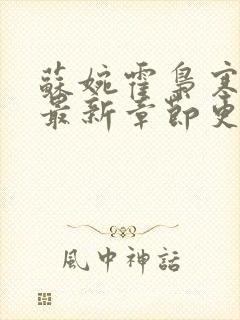 蘇婉霍梟寒
最新章節更
風中神話